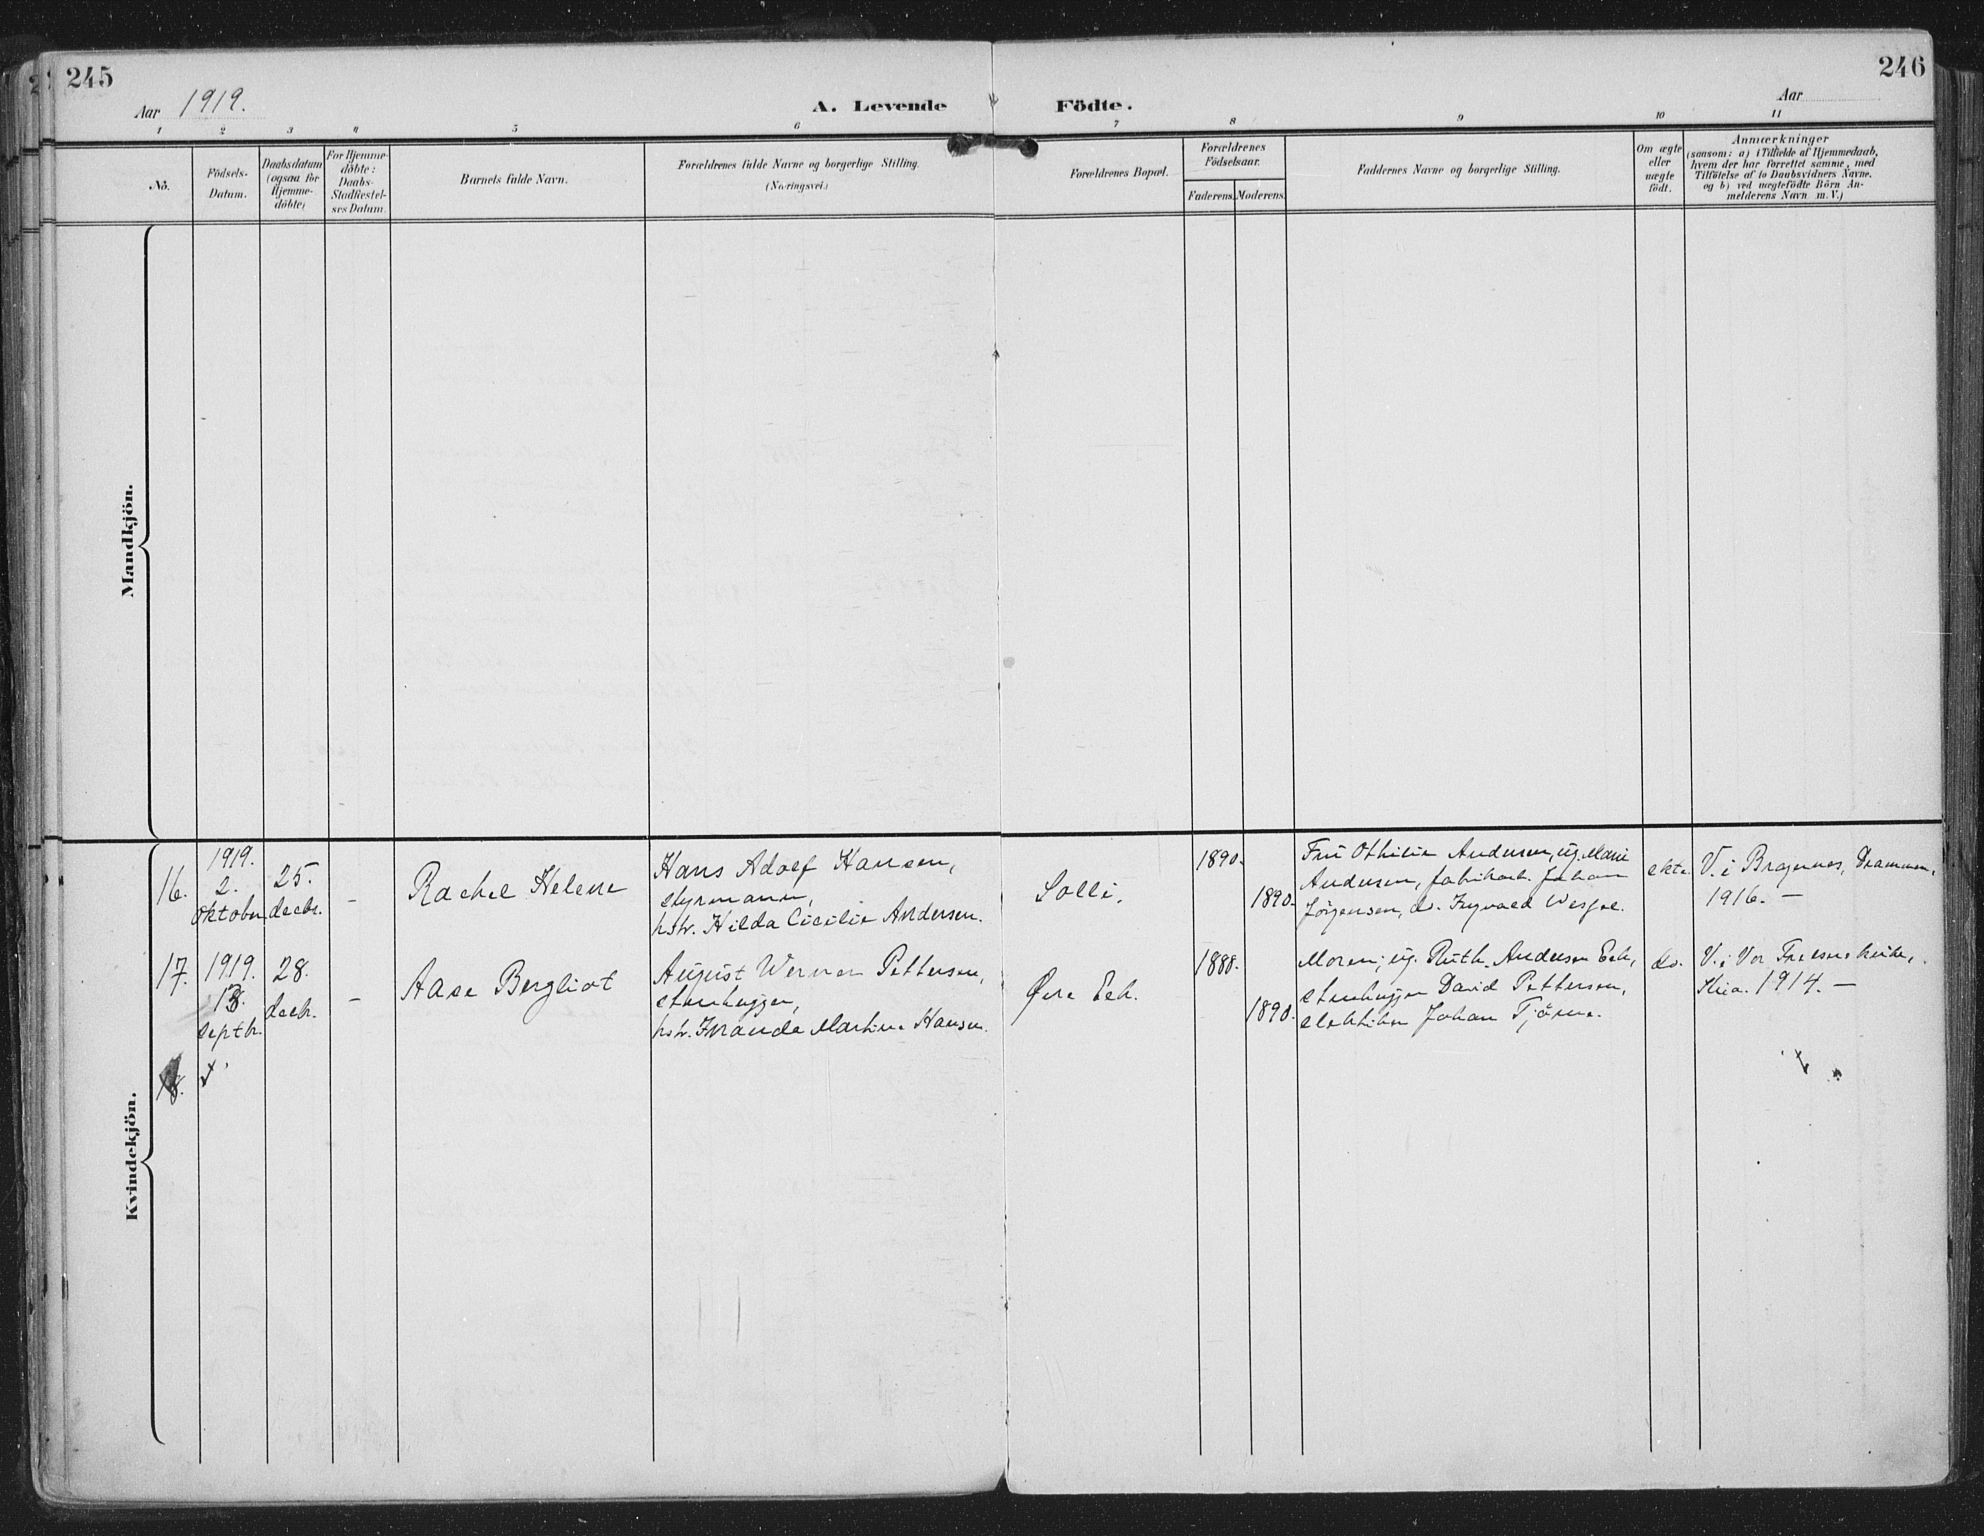 245
246
Aar 1919.
A. Levende Födte.
Aar
1 2 3 4 5 6 7 8 9 10 11
No.
Födsels-
Datum.
Daabsdatum
(ogsaa for
Hjemme-
döbte)
For Hjemme-
döbte:
Daabs-
Stadfæstel-
ses Datum
Barnets fulde Navn.
Forældrenes fulde Navne og borgerlige Stilling.
(Næringsvei.)
Forældrenes Bopæl.
Forældrenes
Födselsaar.
Faderens.
Moderens.
Faddernes Navne og borgerlige Stilling.
Om ægte
eller
uægte
födt.
Anmærkninger
(saasom: a) i Tilfælde af Hjemmedaab,
hvem der har forrettet samme, med
Tilföielse af to Daabsvidners Navne,
og b) ved uægtefödte Börn An-
melderens Navn m. V.)
Mandkjön.
Kvindekjön.
16.
1919.
2.
oktober
25.
decbr.
-
Rachel Helene
Hans Adolf Hansen,
styrmann,
hstr. Hilda Cicilie Andersen.
Solli.
1890.
1890.
Fru Othilie Andersen, ug. Marie
Andersen, fabrikarb. Johan
Jörgensen, do. Ingvald
ekte
V. i Bragernes, Drammen,
1916. -
17.
1919.
13.
septbr.
28.
decbr.
-
Aase Bergliot
August Werner Pettersen,
stenhugger,
hstr. Inanda Martine Hansen.
Øvre Eek.
1888.
1890.
Moren, ug. Ruth Andersen Eek,
stenhugger David Pettersen,
Johan Tjøme.
do.
V. i Vor Frelsers kirke,
Kria. 1914. -
18.